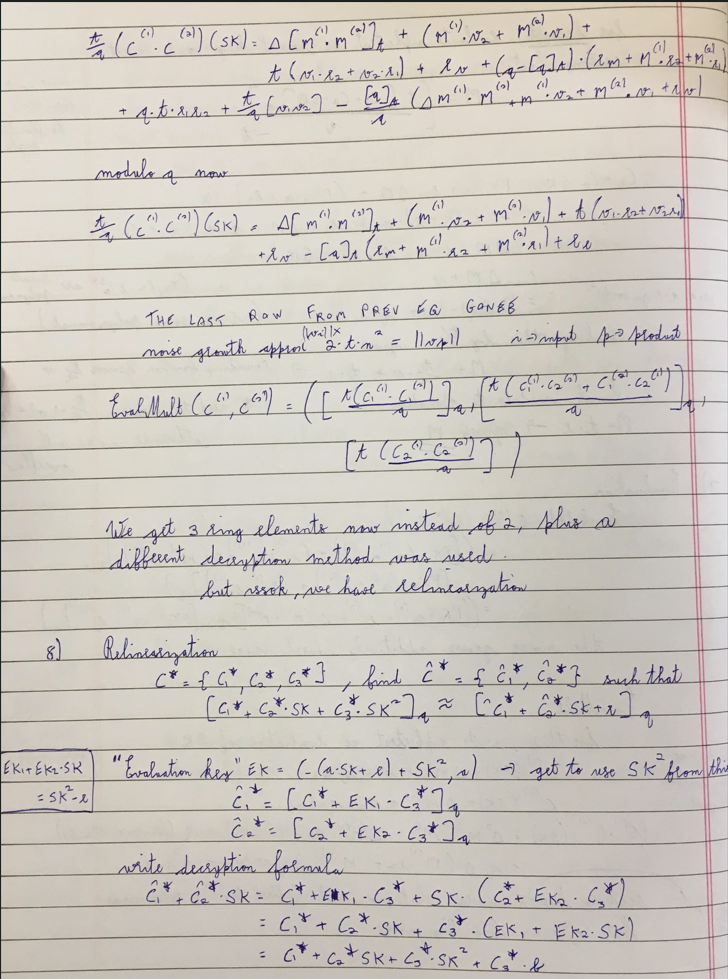 t/q (C⁽¹⁾·C⁽²⁾)(SK) = Δ[M⁽¹⁾·M⁽²⁾]ₜ + (M⁽¹⁾·v₂ + M⁽²⁾·v₁) +
t(v₁·r₂ + v₂·r₁) + rᵥ + (q-[q]ₜ)·(rₘ + M⁽¹⁾·r₂ + M⁽²⁾·r₁)
+ q·t·r₁r₂ + t/q [v₁v₂] - [q]ₜ/q (ΔM⁽¹⁾·M⁽²⁾ + M⁽¹⁾·v₂ + M⁽²⁾·v₁ + rᵥ)
modulo q now
t/q (C⁽¹⁾·C⁽²⁾)(SK) = Δ[M⁽¹⁾·M⁽²⁾]ₜ + (M⁽¹⁾·v₂ + M⁽²⁾·v₁) + t(v₁·r₂ + v₂r₁)
+ rᵥ - [q]ₜ(rₘ + M⁽¹⁾·r₂ + M⁽²⁾·r₁) + rᵣ
THE LAST ROW FROM PREV EQ GONEE
noise growth approx ||vᵢ|| x 2·t·n² = ||vp|| i → input p → product
EvalMult (C⁽¹⁾, C⁽²⁾) = ([t(C₁⁽¹⁾·C₁⁽²⁾)/q]q, [t(C₁⁽¹⁾·C₂⁽²⁾ + C₁⁽²⁾·C₂⁽¹⁾)/q]q,
[t(C₂⁽¹⁾·C₂⁽²⁾)/q])
We get 3 ring elements now instead of 2, plus a
different decryption method was used.
but issok, we have relinearization
8) Relinearization
C* = {C₁*, C₂*, C₃*}, find Ĉ* = {Ĉ₁*, Ĉ₂*} such that
[C₁* + C₂*·SK + C₃*·SK²]q ≈ [Ĉ₁* + Ĉ₂*·SK + r]q
EK₁+EK₂·SK
= SK²-e
"Evaluation key" EK = (-(a·SK+e) + SK², a) → get to use SK² from thi
Ĉ₁* = [C₁* + EK₁·C₃*]q
Ĉ₂* = [C₂* + EK₂·C₃*]q
write decryption formula
Ĉ₁* + Ĉ₂*·SK = C₁* + EK₁·C₃* + SK·(C₂* + EK₂·C₃*)
= C₁* + C₂*·SK + C₃*·(EK₁ + EK₂·SK)
= C₁* + C₂*SK + C₃*·SK² + C₃*·e